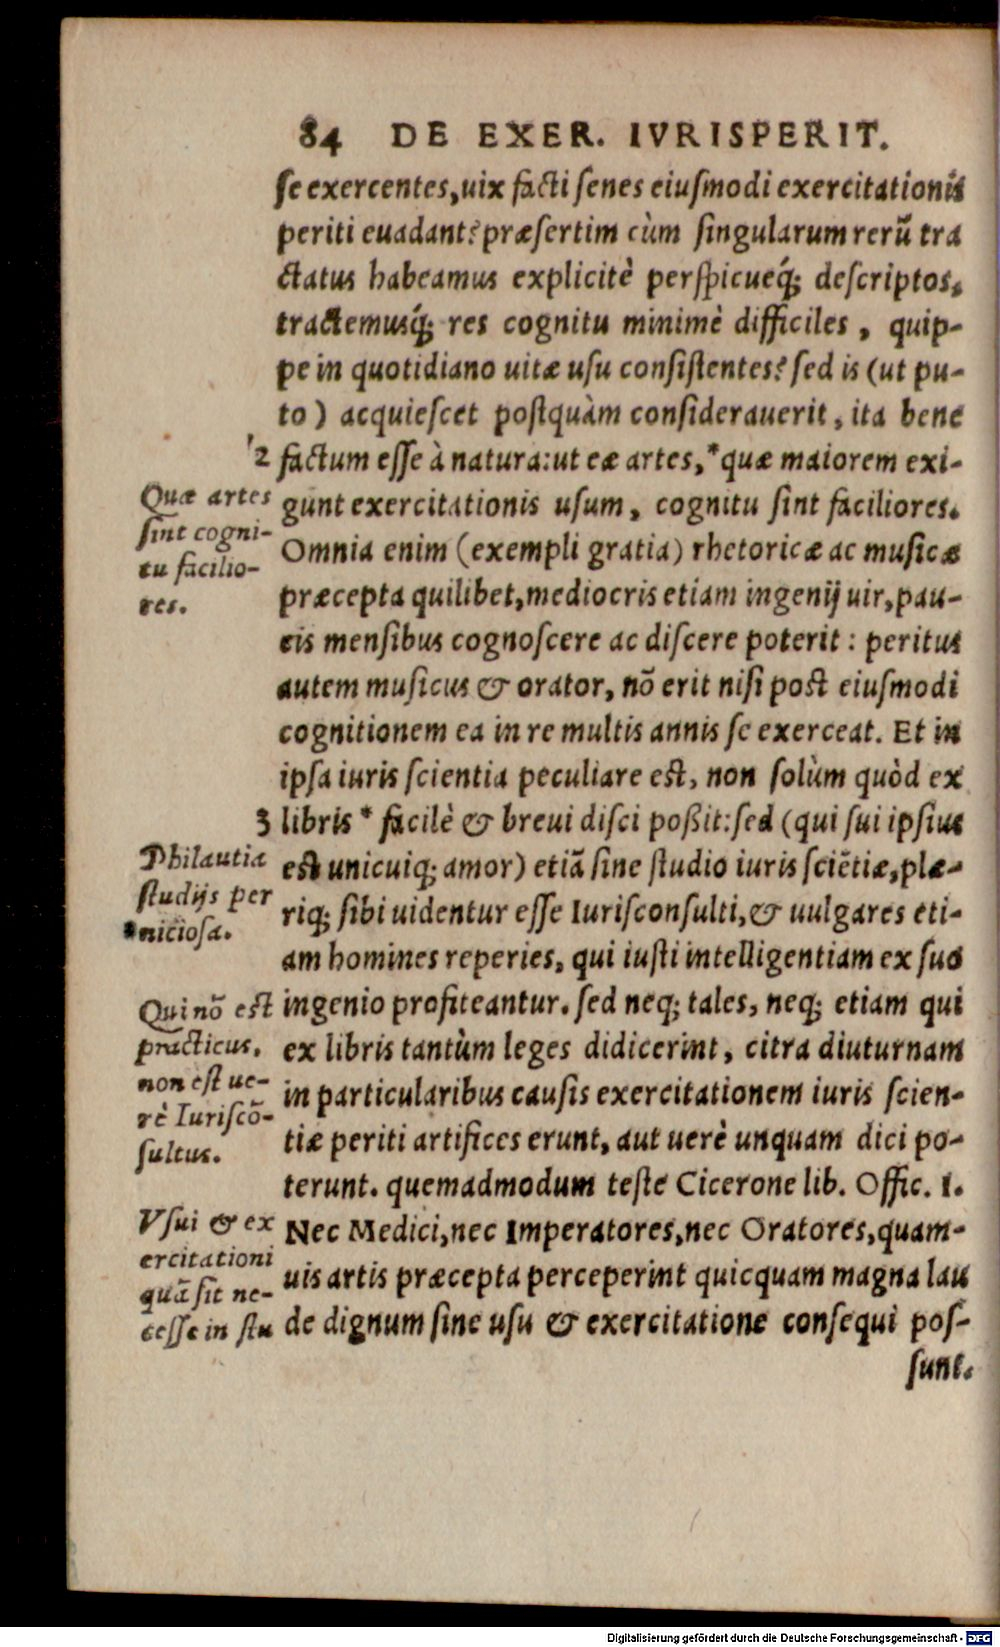 84 DE EXER. IVRISPERIT.
ſe exercentes, uix facti ſenes eiuſmodi exercitationis
periti euadant? præſertim cùm ſingularum rerũ tra
ctatus habeamus explicitè perſpicueq́; deſcriptos,
tractemusq́; res cognitu minimè difficiles, quip-
pe in quotidiano uitæ uſu conſiſtentes? ſed is (ut pu-
to) acquieſcet poſtquàm conſiderauerit, ita bene
2 factum eſſe à natura: ut eæ artes, *quæ maiorem exi-
gunt exercitationis uſum, cognitu ſint faciliores.
Omnia enim (exempli gratia) rhetoricæ ac muſicæ
præcepta quilibet, mediocris etiam ingenij uir, pau-
cis menſibus cognoſcere ac diſcere poterit: peritus
autem muſicus & orator, nõ erit niſi post eiuſmodi
cognitionem ea in re multis annis ſe exerceat. Et in
ipſa iuris ſcientia peculiare est, non ſolùm quòd ex
3 libris * facilè & breui diſci poßit: ſed (qui ſui ipſius
est unicuiq; amor) etiã ſine ſtudio iuris ſciẽtiæ, plæ-
riq; ſibi uidentur eſſe Iuriſconſulti, & uulgares eti-
am homines reperies, qui iuſti intelligentiam ex ſuo
ingenio profiteantur. ſed neq; tales, neq; etiam qui
ex libris tantùm leges didicerint, citra diuturnam
in particularibus cauſis exercitationem iuris ſcien-
tiæ periti artifices erunt, aut uerè unquam dici po-
terunt. quemadmodum teſte Cicerone lib. Offic. 1.
Nec Medici, nec Imperatores, nec Oratores, quam-
uis artis præcepta perceperint quicquam magna lau
de dignum ſine uſu & exercitatione conſequi poſ-
ſunt.
Quæ artes
ſint cogni-
tu facilio-
res.
Philautia
ſtudijs per
nicioſa.
Qui nõ est
practicus,
non eſt ue-
rè Iuriſcõ-
ſultus.
Vſui & ex
ercitationi
quã ſit ne-
ceſſe in ſtu
Digitalisierung gefördert durch die Deutsche Forschungsgemeinschaft - DFG